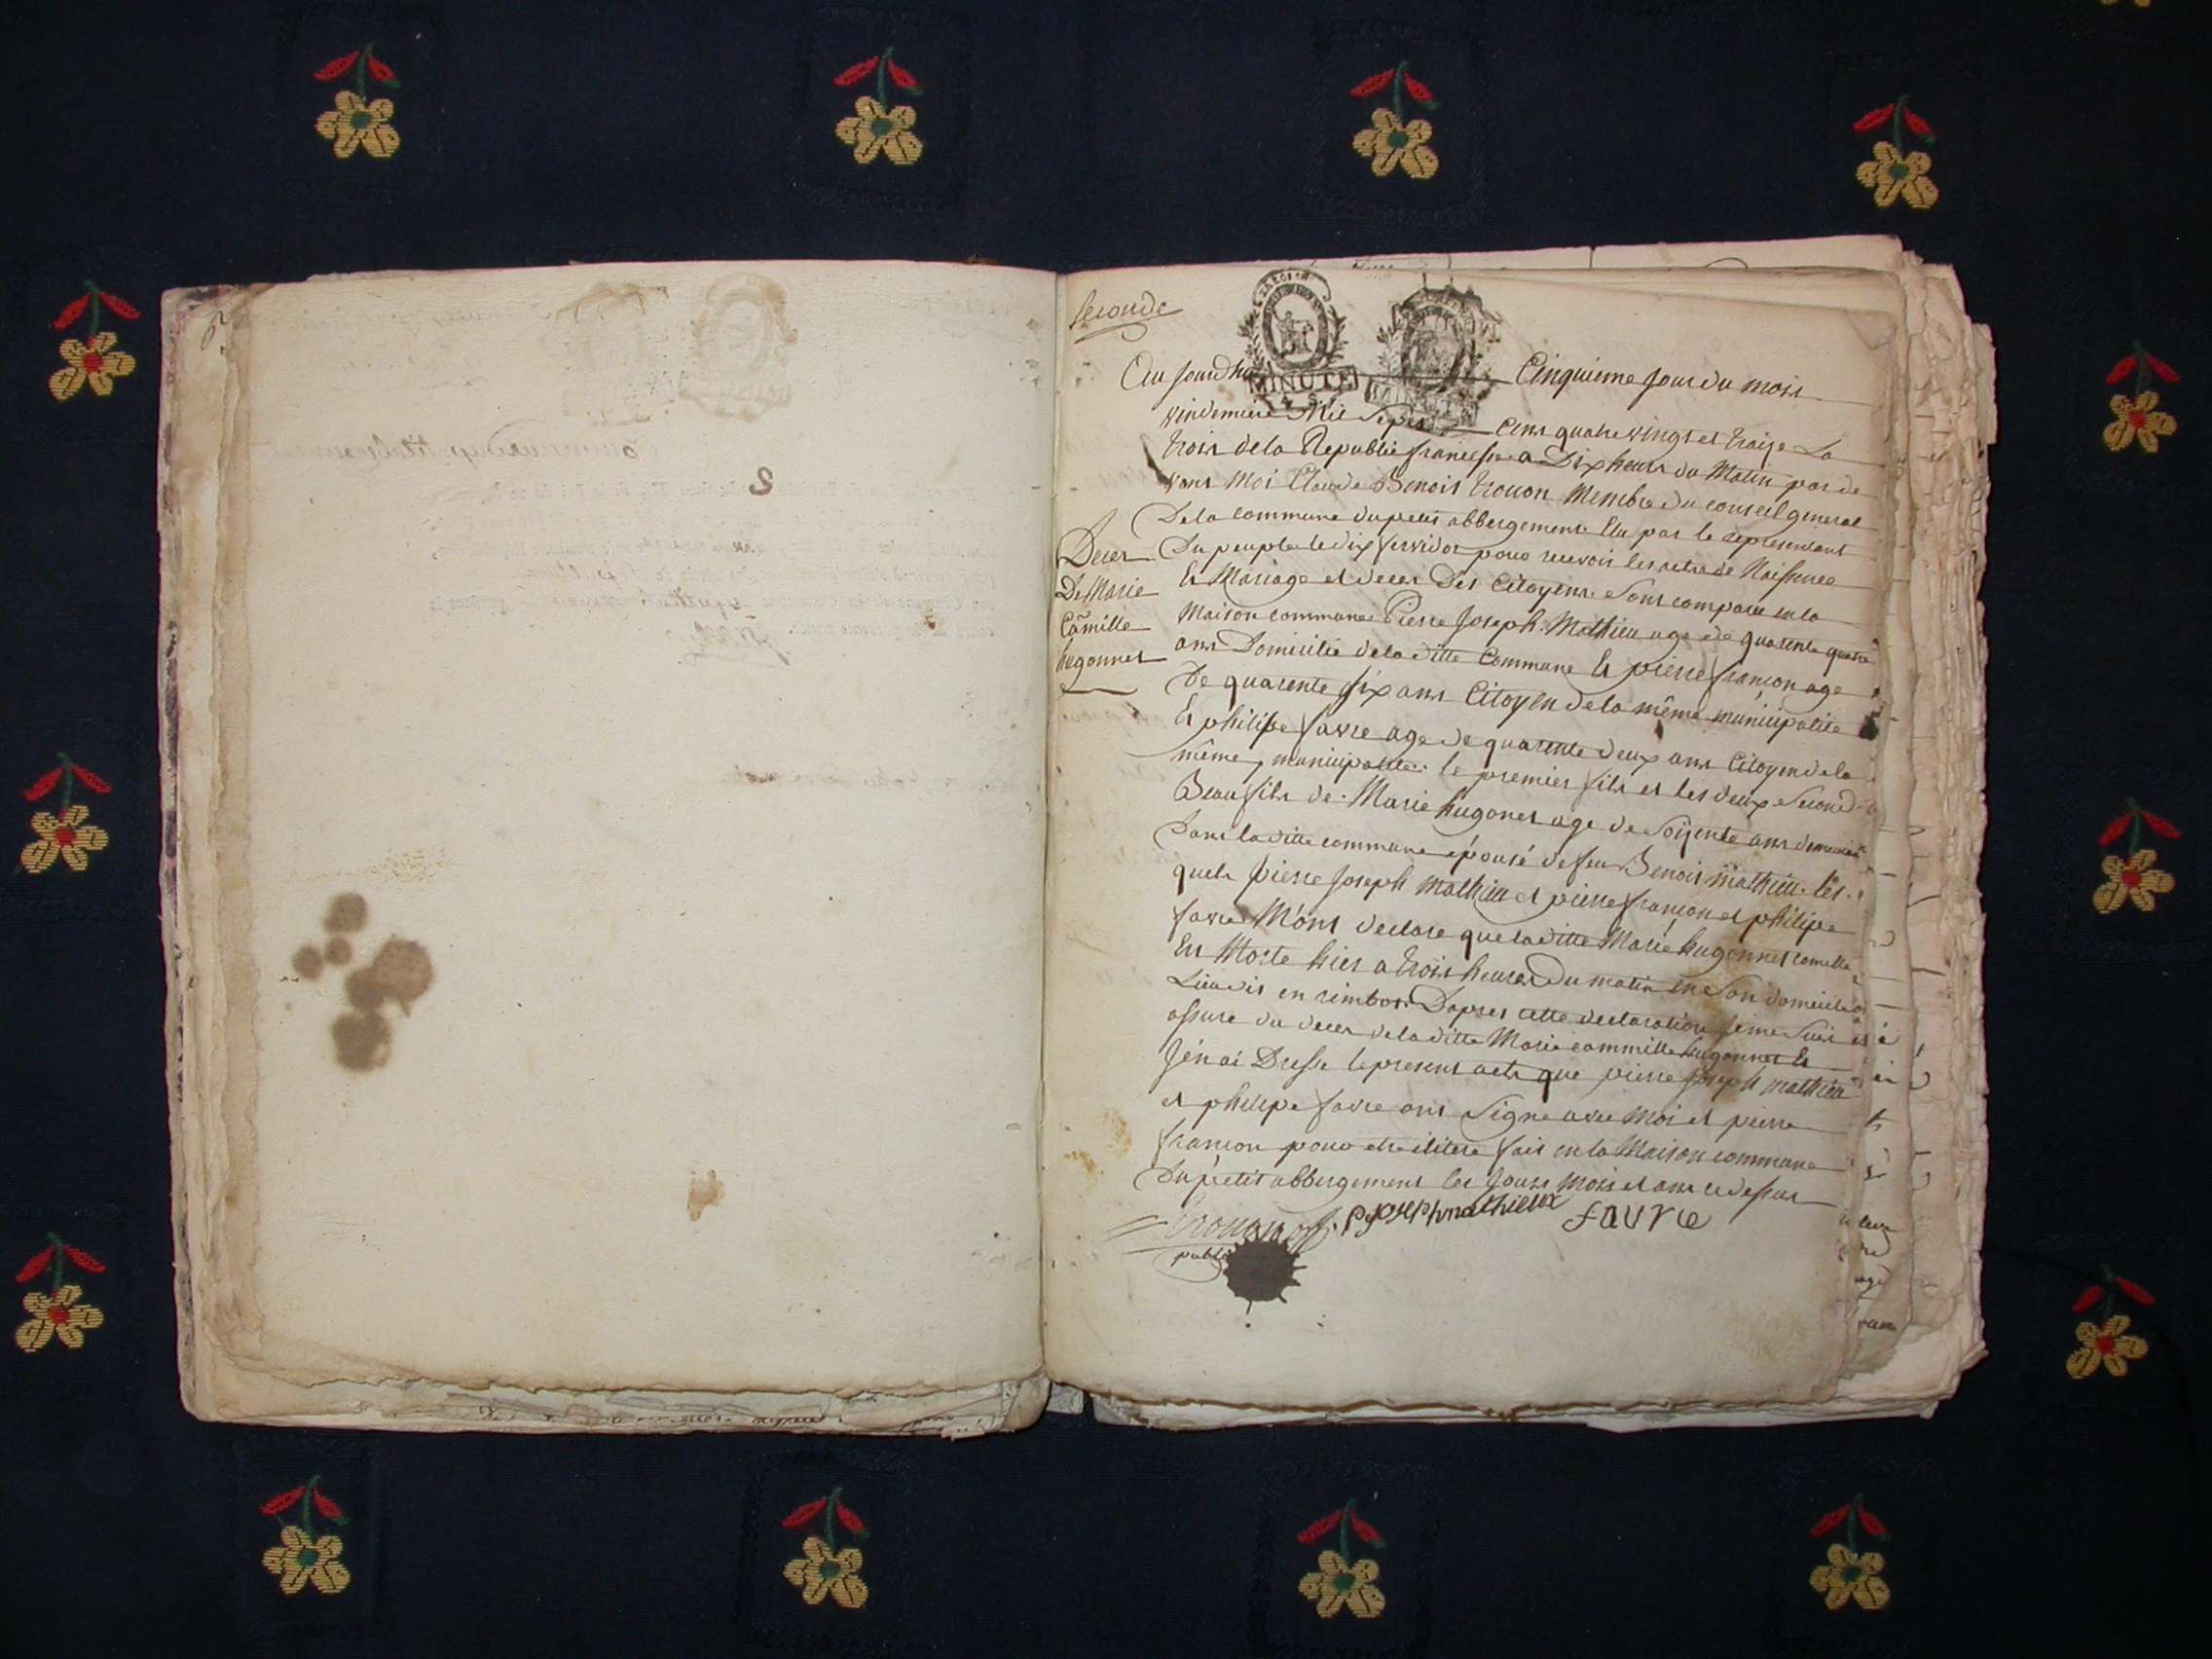 Seconde
MINUTE
Au jourdhui Cinquieme jour du mois
vindemiere Mil Sept Cens quatre vingt et traize La
trois dela Republic francesse a Dix heurs du Matin par de
vans Moi Claude Benois trouon Membre du conseil general
Dela Commune du petit abbergement Elu par le representant
Du peuple le dix fervidor pour recevoir les acte de Naissence
Et Mariage et deces Des Citoyens Sont comparu en la
Deces
De Marie
Camille
hugonnet
Maison commune Pierre Joseph Mathieu age de quarente quatre
ans Domicilié dela ditte Commune Et pierre françon age
De quarente six ans Citoyen dela même municipalite
Et philipe favre age de quarente deux ans Citoyen dela
même municipalite le premier fils et les deux Second
Beau fils de Marie hugonet age de Soixente ans
Dans la ditte commune épousé de feu Benois mathieu les
quels pierre Joseph mathieu et pierre françon et philipe
favre M'ont declare que la ditte Marie hugonnet
Est Morte hier a trois heures du matin en Son domicile
Lieu dit en Dapres cette declaration je me Suis
assure du deces dela ditte Marie cammille hugonnet Et
J'en ai Dresse le present acte que pierre joseph mathieu
et philipe favre ont Signe avec Moi et pierre
françon pour etre fait en la Maison commune
Du petit abbergement les jours mois et ans cidessus
trouon off. PJOSEPh mathieux FAVRE
public
2